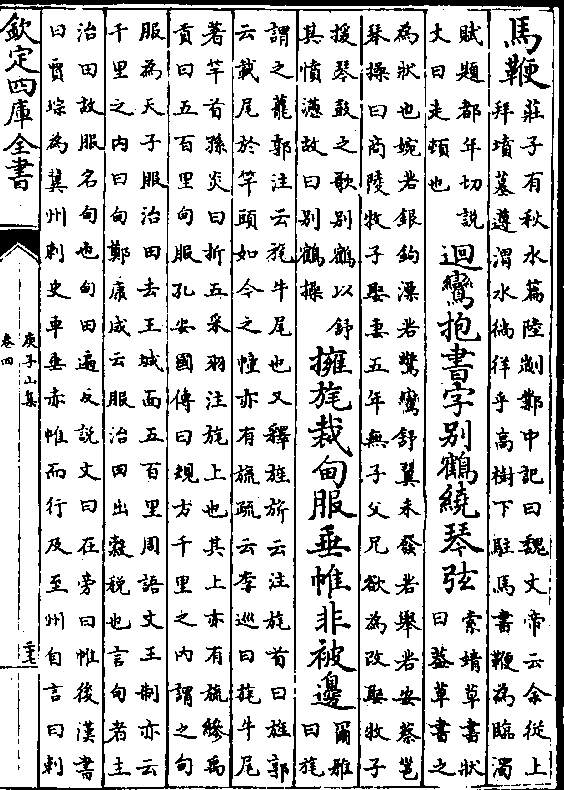 馬鞭莊子有秋水篇陸劌鄴中記曰魏文帝云余從上
拜墳墓遵渭水徜徉乎高樹下駐馬書鞭為臨濁
賦題都年切説
文曰走頓也
迴鸞抱書字别鶴繞琴弦索靖草書狀
曰葢草書之
為狀也婉若銀鈎漂若驚鸞舒翼未發若舉若安蔡邕
琴操曰商陵牧子娶妻五年無子父兄欲為改娶牧子
援琴鼓之歌别鶴以舒
其憤懣故曰别鶴操
擁旄裁甸服垂帷非被邊爾雅
曰旄
謂之蘢郭注云旄牛尾也又釋旌旂云注旄首曰旌郭
云載尾於竿頭如今之幢亦有旒疏云李巡曰旄牛尾
著竿首孫炎曰折五采羽注旄上也其上亦有旒縿禹
貢曰五百里甸服孔安國傳曰規方千里之内謂之甸
服為天子服治田去王城面五百里周語文王制亦云
千里之内曰甸鄭康成云服治田出穀税也言甸者主
治田故服名甸也甸田遍反説文曰在旁曰帷後漢書
曰賈琮為冀州刺史車垂赤帷而行及至州自言曰刺
欽定四庫全書
庾子山集
卷四